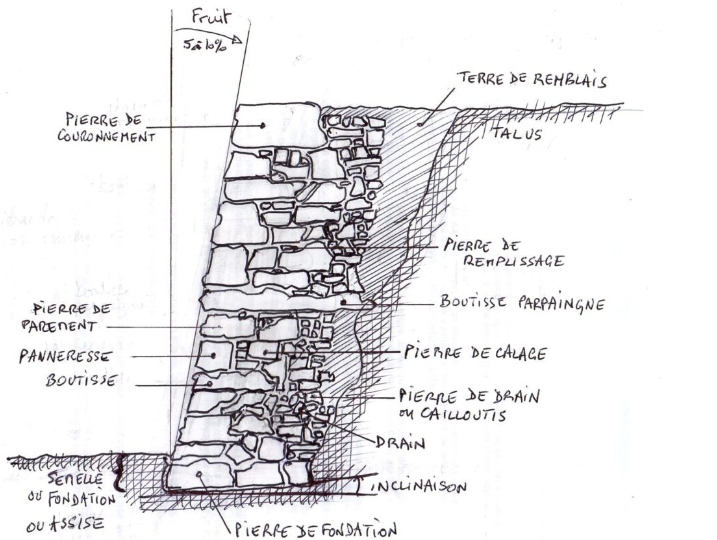 Fruit
5 à 10%
TERRE DE REMBLAIS
PIERRE DE
COURONNEMENT
TALUS
PIERRE DE
REMPLISSAGE
BOUTISSE PARPAINGNE
PIERRE DE
PAREMENT
PANNERESSE
PIERRE DE CALAGE
BOUTISSE
PIERRE DE DRAIN
ou CAILLOUTIS
DRAIN
SEMELLE
OU FONDATION
OU ASSISE
INCLINAISON
PIERRE DE FONDATION